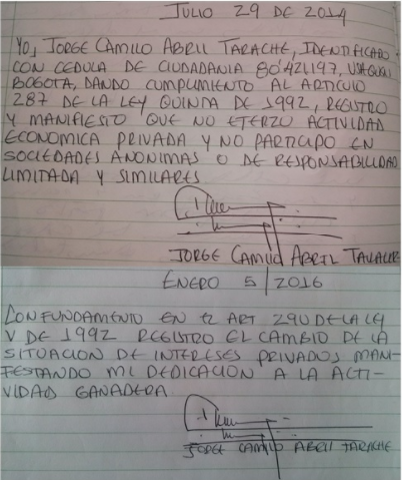 JULIO 29 DE 2014
YO, JORGE CAMILO ABRIL TARACHE, IDENTIFICADO
CON CEDULA DE CIUDADANIA 80'421197,
BOGOTA, DANDO CUMPLIMIENTO AL ARTICULO
287 DE LA LEY QUINTA DE 1992, REGISTRO
Y MANIFIESTO QUE NO EJERZO ACTIVIDAD
ECONOMICA PRIVADA Y NO PARTICIPO EN
SOCIEDADES ANONIMAS O DE RESPONSABILIDAD
LIMITADA Y SIMILARES
JORGE CAMILO ABRIL TARACHE
ENERO 5/2016
CON FUNDAMENTO EN EL ART 290 DE LA LEY
V DE 1992 REGISTRO EL CAMBIO DE LA
SITUACION DE INTERESES PRIVADOS MANI-
FESTANDO MI DEDICACION A LA ACTI-
VIDAD GANADERA
JORGE CAMILO ABRIL TARACHE